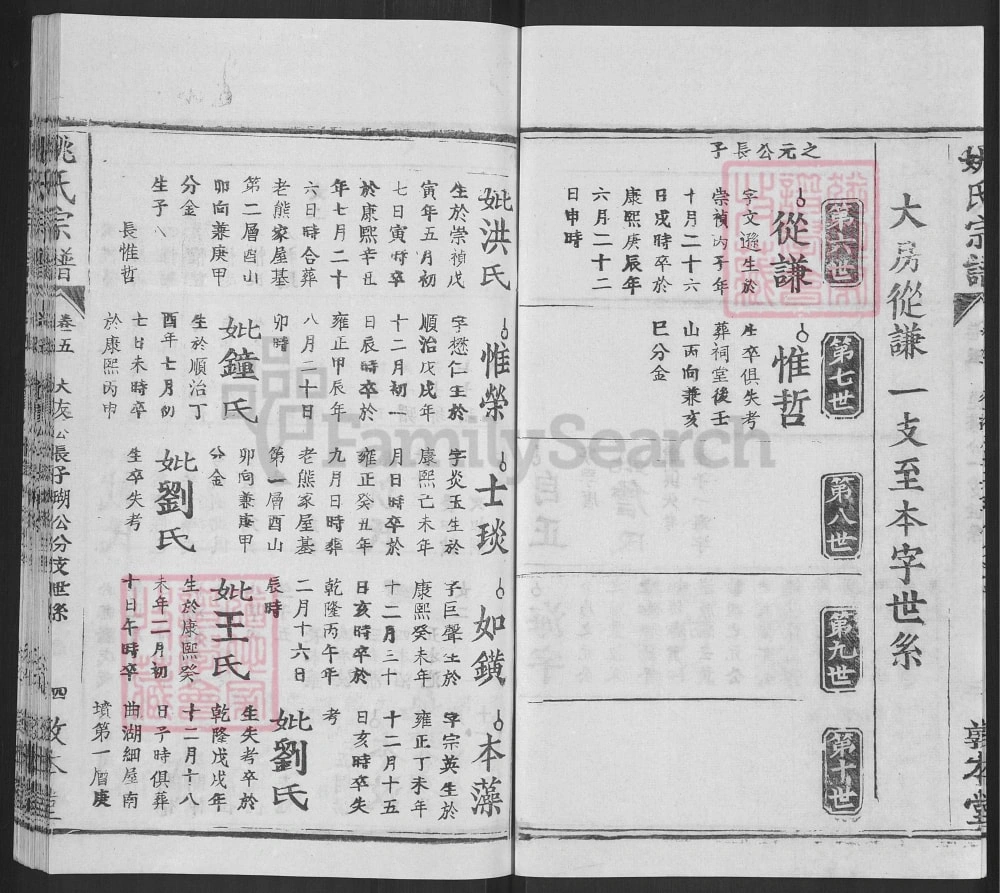 姚氏宗譜
敦本堂
大房從謙一支至本字世系
第六世
第七世
第八世
第九世
第十世
之元公長子
從謙
字文遜生於
崇禎丙子年
十月二十六
日戌時卒於
康熙庚辰年
六月二十二
日申時
惟哲
生卒俱失考
葬祠堂後壬
山丙向兼亥
巳分金
妣洪氏
生於崇禎戊
寅年五月初
七日寅時卒
於康熙辛丑
年七月二十
六日時合葬
老熊家屋基
第二層酉山
卯向兼庚甲
分金
生子乀
長惟哲
惟榮
字懋仁生於
順治戊戌年
十二月初一
日辰時卒於
雍正甲辰年
八月二十日
卯時
妣鐘氏
生於順治丁
酉年七月初
七日未時卒
於康熙丙申
士琰
字炎玉生於
康熙己未年
月日時卒於
雍正癸丑年
九月日時葬
老熊家屋基
第一層酉山
卯向兼庚甲
分金
妣劉氏
生卒失考
如鐄
子巨聲生於
康熙癸未年
十二月三十
日亥時卒於
乾隆丙午年
二月十六日
辰時
妣王氏
生於康熙癸
未年二月初
十日午時卒
本藻
字宗英生於
雍正丁未年
十二月十五
日亥時卒失
考
妣劉氏
生失考卒於
乾隆戊戌年
十二月十八
日子時俱葬
曲湖細屋南
墳第一層庚
姚氏宗譜
卷五
大友公長子瑚公分支世系
四
敦本堂
FamilySearch